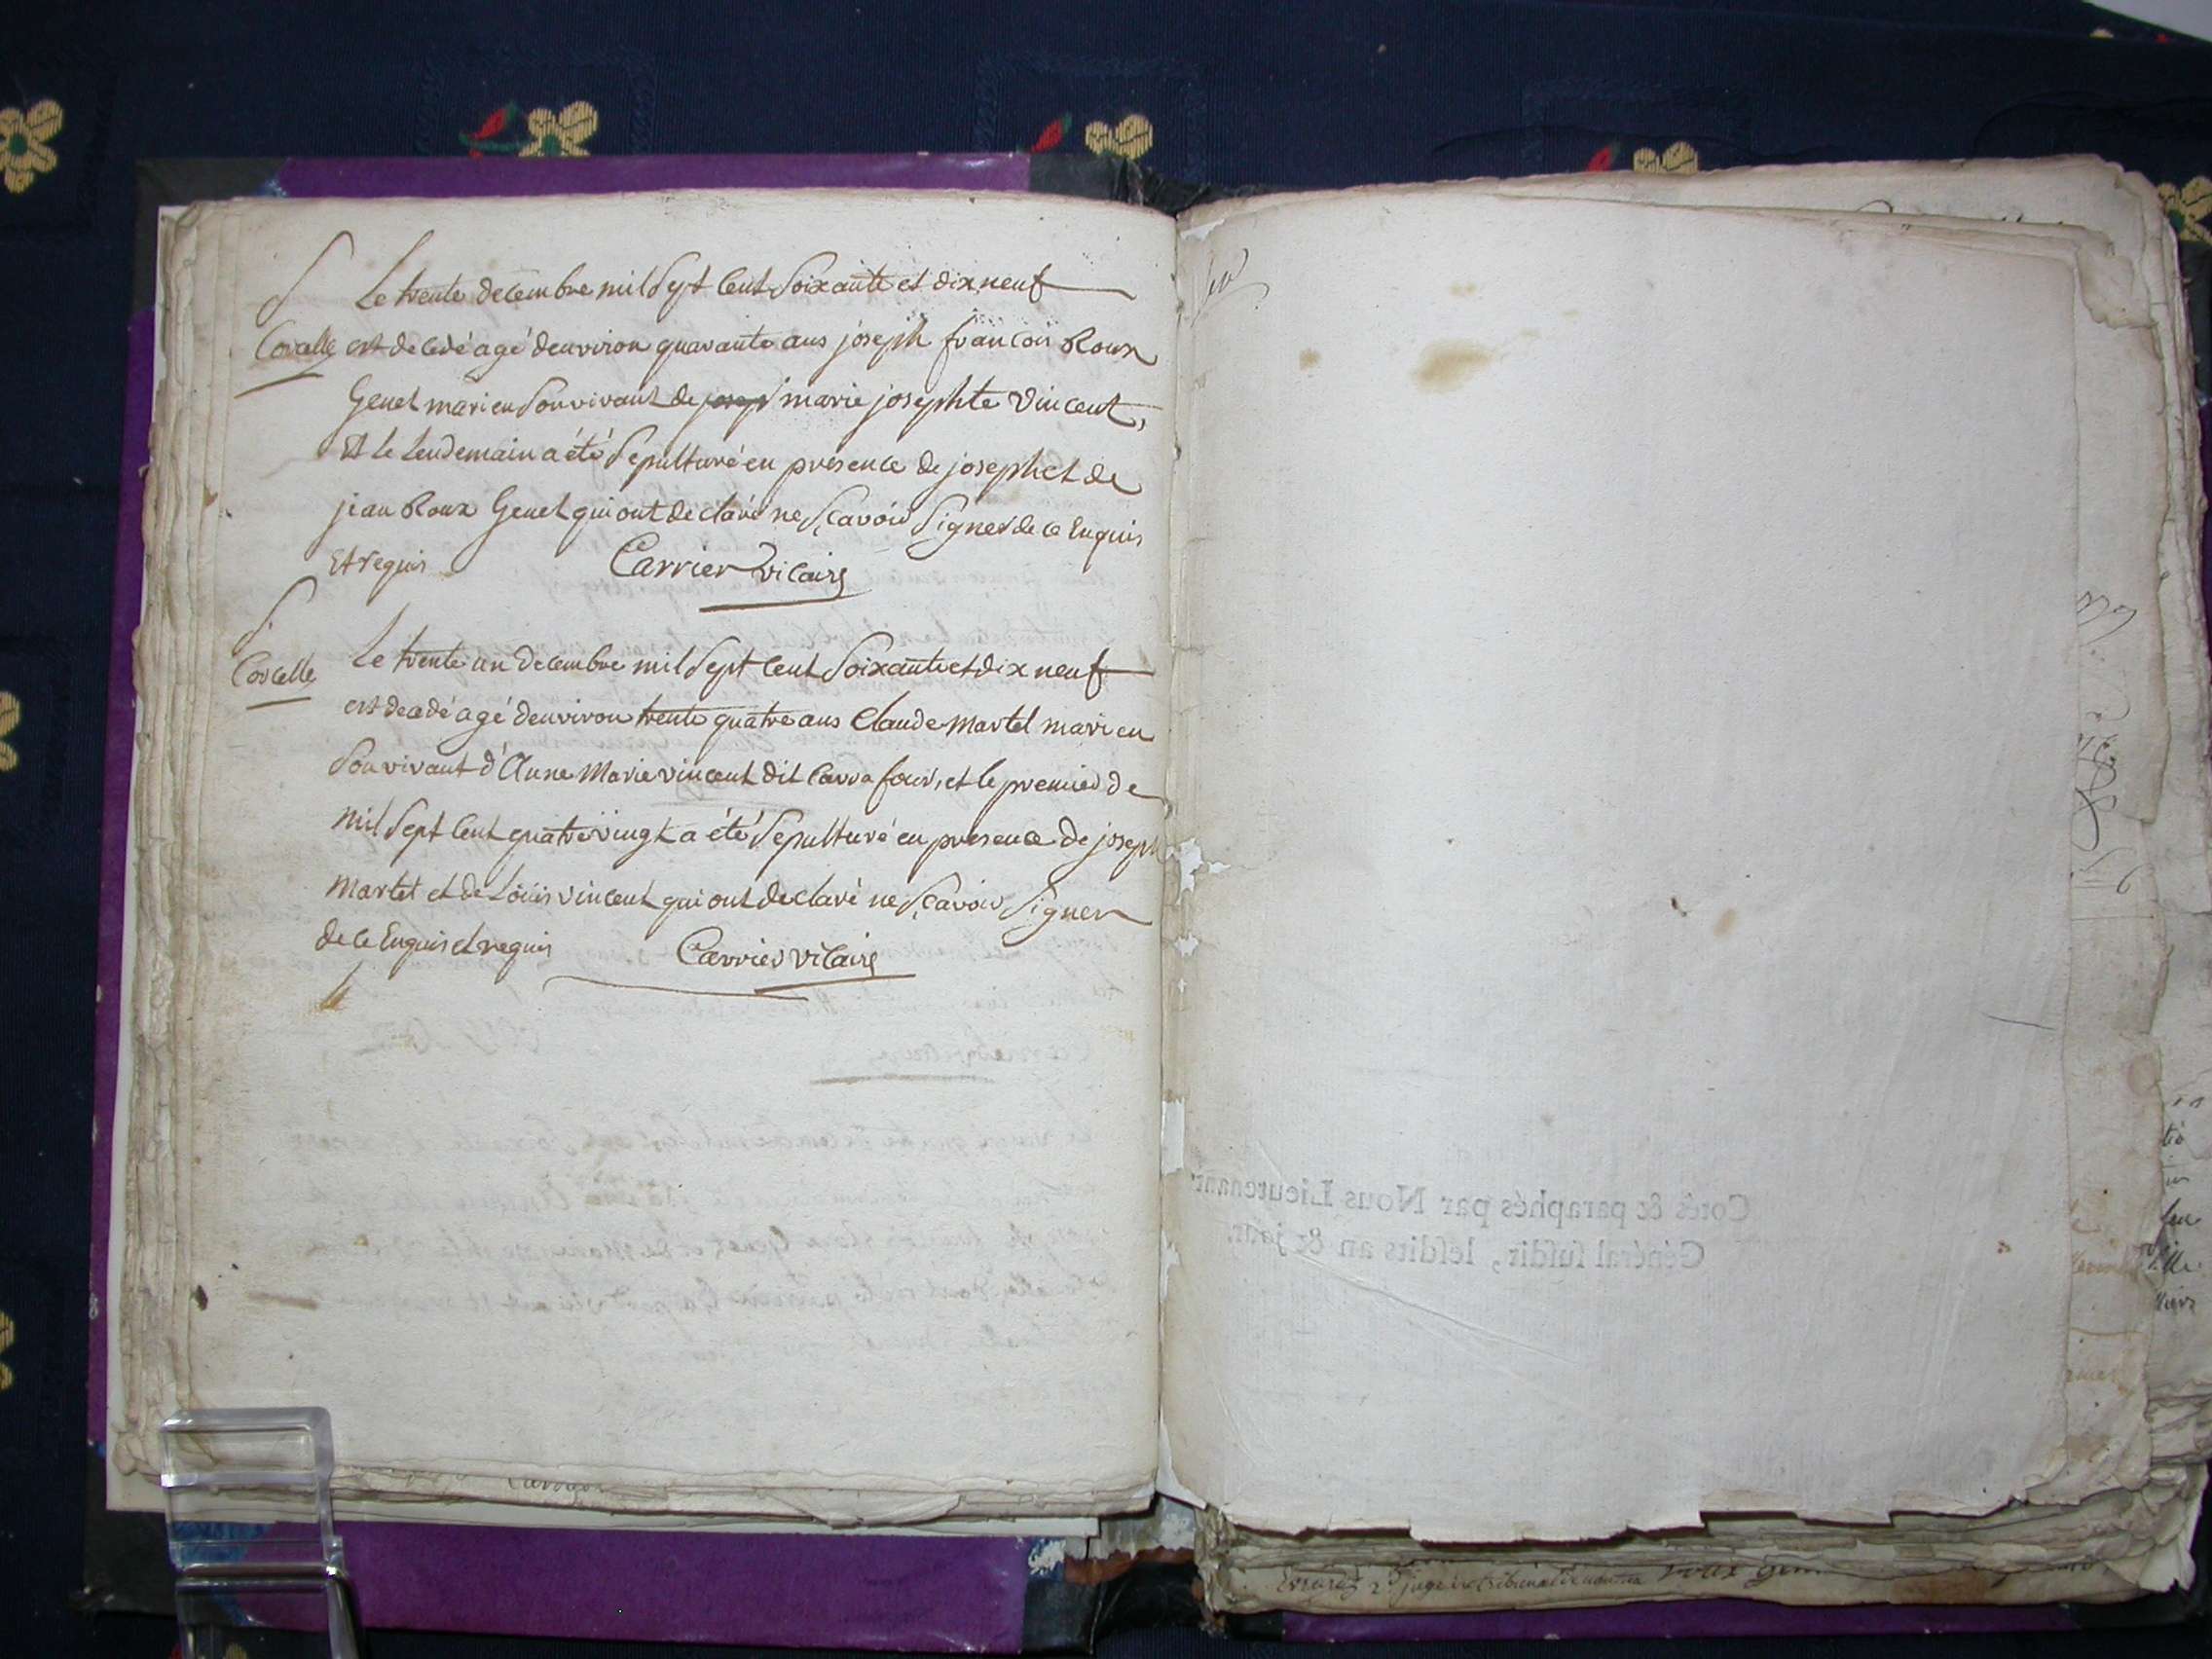 S
Le trente decembre mil Sept Cent Soixante et dix neuf
Corcelle
est decedé agé denviron quarante ans joseph francois Roux
Genet mari en Son vivant de josep marie josephte Vincent,
Et le Lendemain a été Sepulturé en presence de joseph et de
jean Roux Genet qui ont declaré ne Sçavoir Signer de ce Enquis
Et requis
Carrier vicaire
S.
Corcelle
Le trente un decembre mil Sept Cent Soixante et dix neuf
est decedé agé denviron trente quatre ans Claude Martel mari en
Son vivant d'Anne Marie vincent dit Carra four, et le premier de
mil Sept Cent quatre vingt a été Sepulturé en presence de joseph
Martet et de Loüis vincent qui ont declaré ne Sçavoir Signer
de ce Enquis et requis
Carrier vicaire
Cotés & paraphés par Nous Lieutenant
Général ſuſdit, leſdits an & jour.